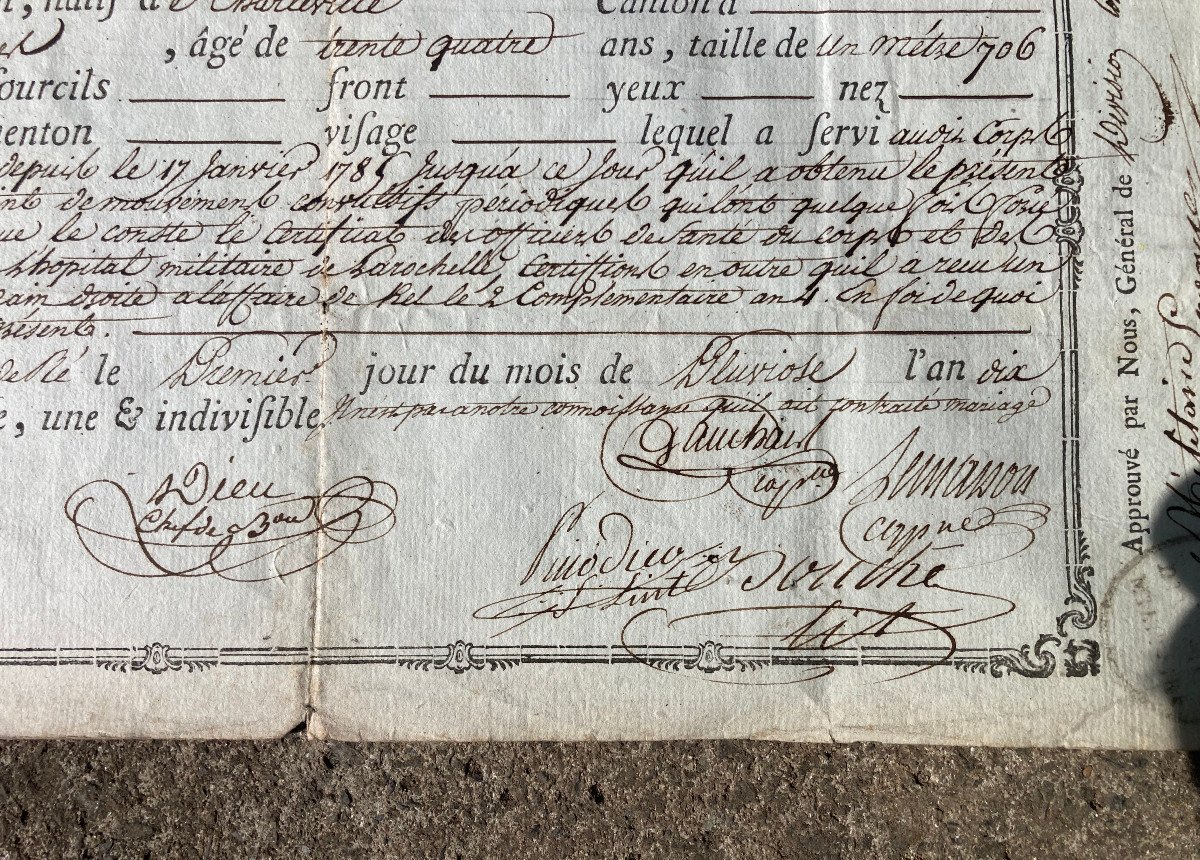 , natif d'e Charleville Canton d
, âgé de trente quatre ans, taille de un métre 706
ſourcils front yeux nez
menton viſage lequel a ſervi audit Corps
depuis le 17 Janvier 1785 Jusqu'a ce Jour qu'il a obtenu le présent
de mouvements convulsifs périodiques qui l'ont quelque fois
que le conste le Certificat des officiers de santé du corps et de
L'hopital militaire de Larochelle, Certiffions en outre qu'il a recu un
main droite a l'affaire de Kel le 2 Complementaire an 4. En foi de quoi
présent.
de Ré le Premier jour du mois de Pluviose l'an dix
, une & indiviſible. Il n'est pas a notre connoissance qu'il ait contracté mariage
Dieu
Chef de Bon
Gauchais
capne
Lemasson
capne
Lt
Approuvé par Nous, Général de Division